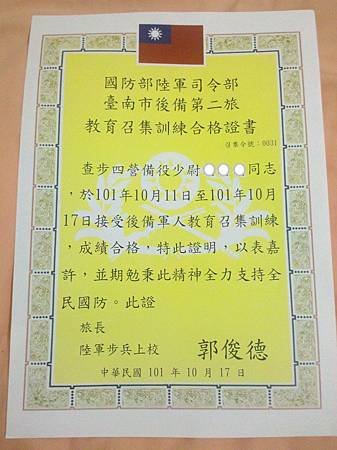 國防部陸軍司令部
臺南市後備第二旅
教育召集訓練合格證書
召集令號：0031
查步四營備役少尉 同志
，於101年10月11日至101年10月
17日接受後備軍人教育召集訓練
，成績合格，特此證明，以表嘉
許，並期勉秉此精神全力支持全
民國防。此證
旅長
陸軍步兵上校 郭俊德
中華民國 101 年 10 月 17 日